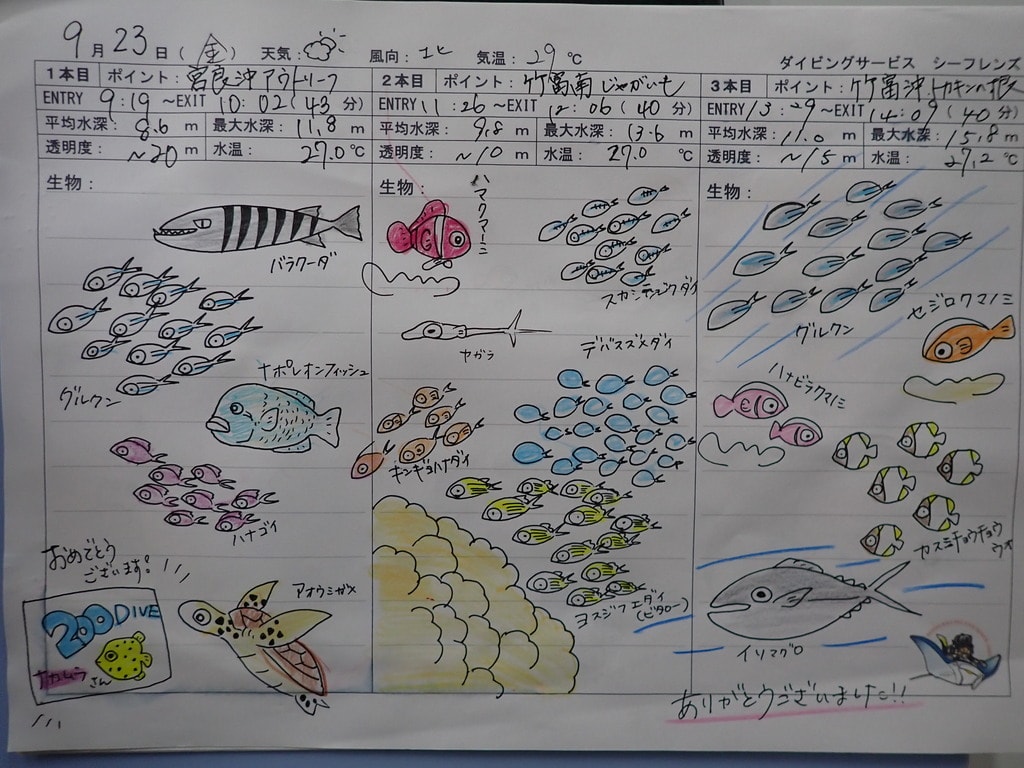 9月23日(金) 天気: 風向:北 気温:29℃
ダイビングサービス シーフレンズ
1本目 ポイント:宮良沖アウトリーフ
ENTRY 9:19~EXIT 10:02(43分)
平均水深: 8.6 m 最大水深: 11.8 m
透明度: ~20 m 水温: 27.0 ℃
生物:
バラクーダ
グルクン
ナポレオンフィッシュ
ハナゴイ
おめでとう
ございます!
200DIVE
ナカムラ
さん
アオウミガメ
2本目 ポイント:竹富南じゃがいも
ENTRY 11:26~EXIT 12:06(40分)
平均水深: 9.8 m 最大水深: 13.6 m
透明度: ~10 m 水温: 27.0 ℃
生物:
ハマクマノミ
スカシテンジクダイ
ヤガラ
デバスズメダイ
キンギョハナダイ
ヨスジフエダイ
(ビタロー)
3本目 ポイント:竹富沖トカキンの根
ENTRY 13:29~EXIT 14:09(40分)
平均水深: 11.0 m 最大水深: 15.8 m
透明度: ~15 m 水温: 27.2 ℃
生物:
グルクン
セジロクマノミ
ハナビラクマノミ
カスミチョウチョウ
ウオ
イソマグロ
ありがとうございました!!